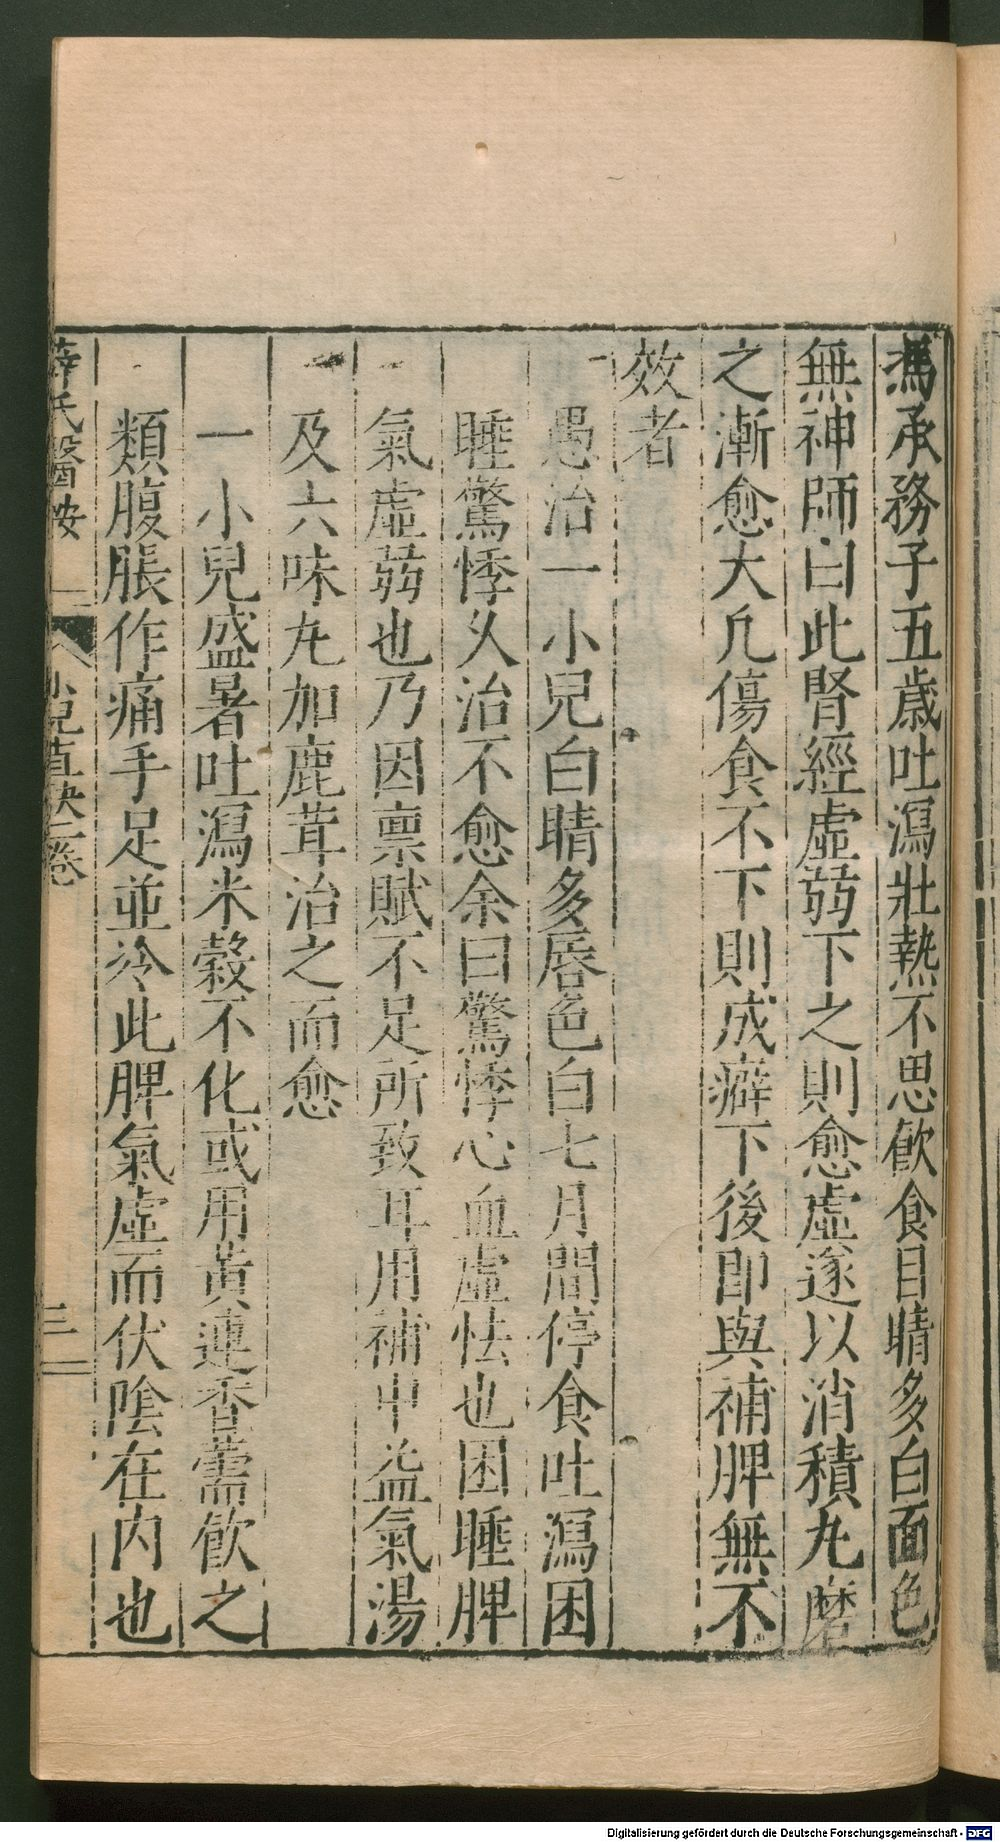 馮承務子五歲吐瀉壯熱不思飲食目睛多白面色
無神師曰此腎經虛弱下之則愈虛遂以消積丸磨
之漸愈大凡傷食不下則成癖下後即與補脾無不
效者
愚治一小兒白睛多唇色白七月間停食吐瀉困
睡驚悸久治不愈余曰驚悸心血虛怯也困睡脾
氣虛弱也乃因禀賦不足所致耳用補中益氣湯
及六味丸加鹿茸治之而愈
一小兒盛暑吐瀉米穀不化或用黃連香薷飲之
類腹脹作痛手足並冷此脾氣虛而伏陰在內也
薛氏醫按 小兒直訣一卷 三
Digitalisierung gefördert durch die Deutsche Forschungsgemeinschaft - DFG